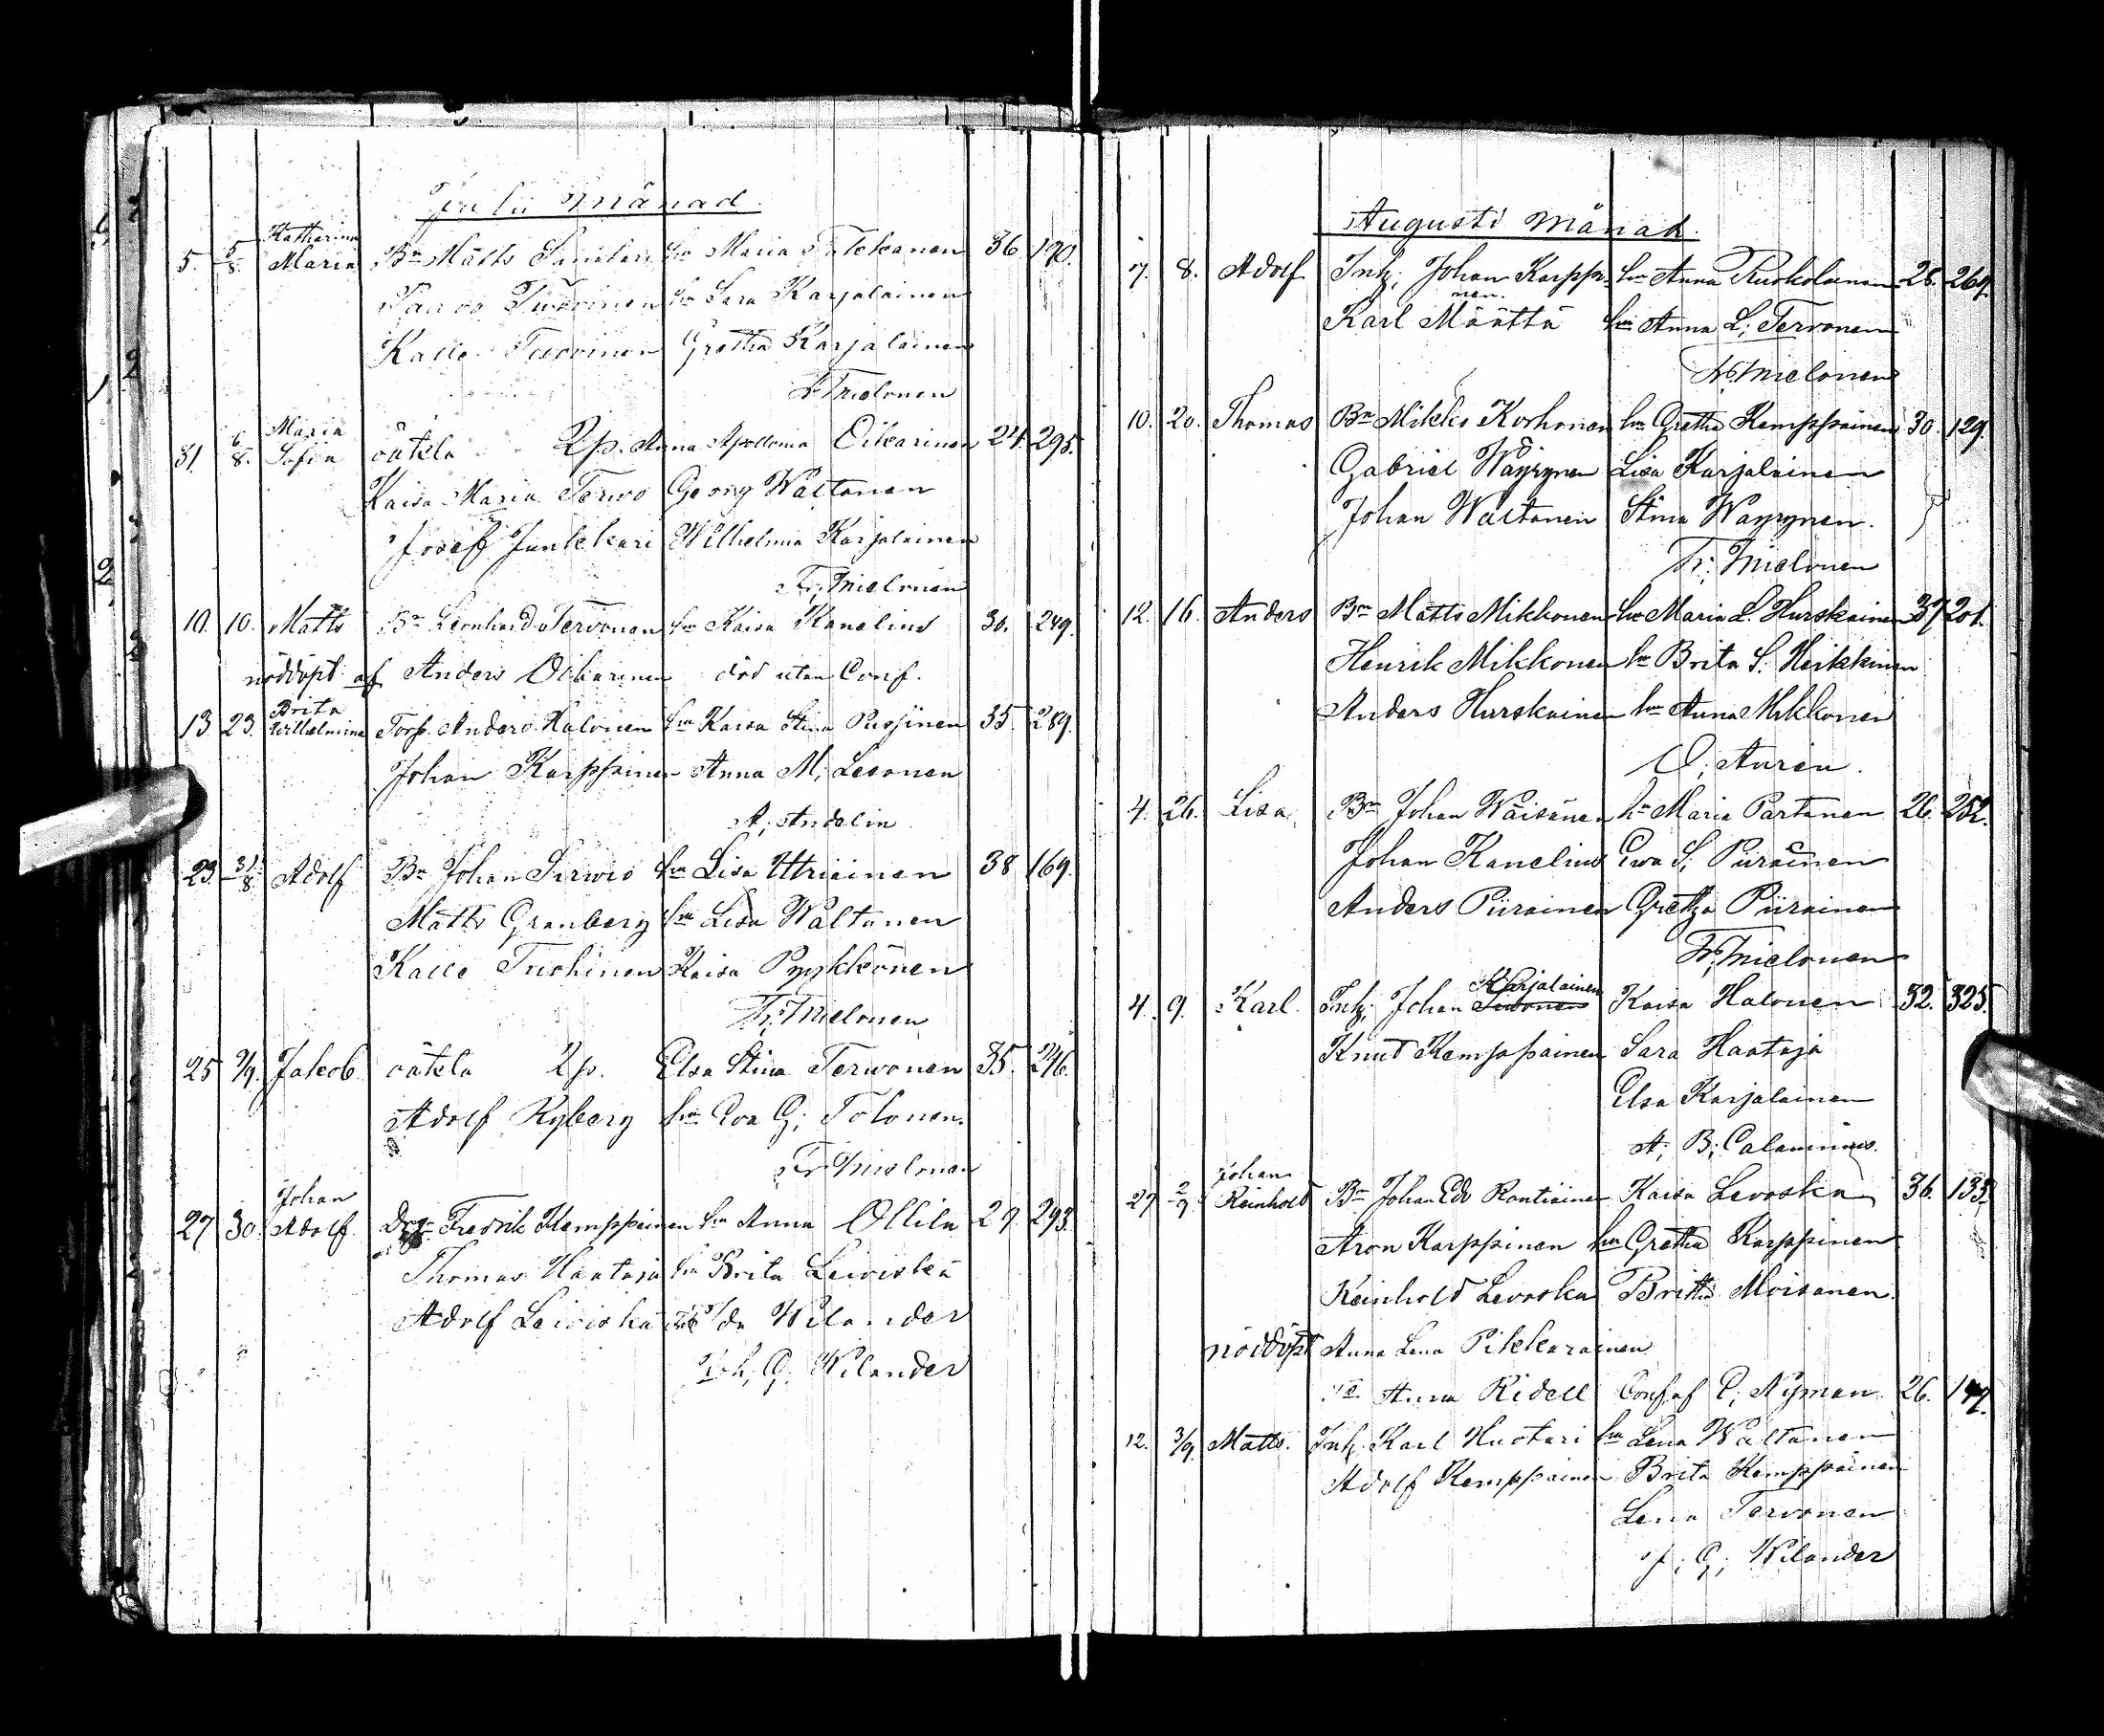 Julii månad.
Katharina
5. 5/8. Maria Bn Matts hu Maria 36 190.
Tuorinen hu Sara Karjalainen
Kalle Tuorinen Gretha Karjalainen
Fr. Mielonen
Maria
31. 6/8. Sofia oäkta Anna Apollonia Oikarinen 24. 295.
Kaisa Maria Terwo Georg Waltanen
Josef Junkkari Wilhelmina Karjalainen
Fr; Mielonen
10. 10. Matts Bn Leonhard Tervonen hu Kaisa Kanelius 30. 249.
nöddöpt af Anders Oikarinen död utan Conf.
Brita
13. 23. Wilhelmina Torp. Anders Halonen hu Kaisa Stina 35. 289.
Johan Karppinen Anna M; Lesonen
A; Andelin
23. 31/8. Adolf Bn Johan Servio hu Lisa Utriainen 38 169.
Matts Granberg hu Lisa Waltanen
Kalle Kaisa Pyykkönen
Fr; Mielonen
25 2/9. Jakob oäkta Elsa Stina Terwonen 35. 246.
Adolf Ryberg hu Eva G; Tolonen.
Fr Mielonen
Johan
27 30. Adolf. Fredrik Kemppainen hu Anna Ollila 27 293.
Thomas Haataja hu Brita Leiviskä
Adolf Leiviskä Ida Wilander
Joh, G; Wilander
Augusti månad.
7. 8. Adolf Inh; Johan Karppi- hu Anna Ruokolainen 28. 269.
nen.
Karl Määttä hu Anna L; Tervonen
Fr; Mielonen
10. 20. Thomas Bn Mikko Korhonen hu Gretha Kemppainen 30. 129.
Gabriel Wäyrynen Lisa Karjalainen
Johan Waltanen Stina Wäyrynen.
Fr; Mielonen
12. 16. Anders Bn Matts Mikkonen hu Maria L. Hurskainen 37 201.
Henrik Mikkonen hu Brita S. Heikkinen
Anders Hurskainen hu Anna Mikkonen
O; Aurén.
4. 26. Lisa. Bn Johan Wäisänen hu Maria Partanen 26. 252.
Johan Kanelius Ewa S; Piirainen
Anders Piirainen Gretha Piirainen
Fr; Mielonen
Karjalainen
4. 9. Karl. Inh; Johan Kaisa Halonen 32. 325.
Knut Kemppainen Sara Haataja
Elsa Karjalainen
A; B; Calamnius.
Johan
27 2/9 Reinhold Bn Johan Edv Rautiainen Kaisa Levoska 36. 135.
Aron Karppinen hu Gretha Karppinen
Reinhold Levoska Britha Moisanen.
nöddöpt Anna Lena Pikkarainen
Anna Ridell Conf. af C; Nyman. 26.
12. 3/9. Matts. Inh. Karl Huotari hu Lena Waltanen
Adolf Kemppainen Brita Kemppainen
Lena Tervonen
J; G; Wilander